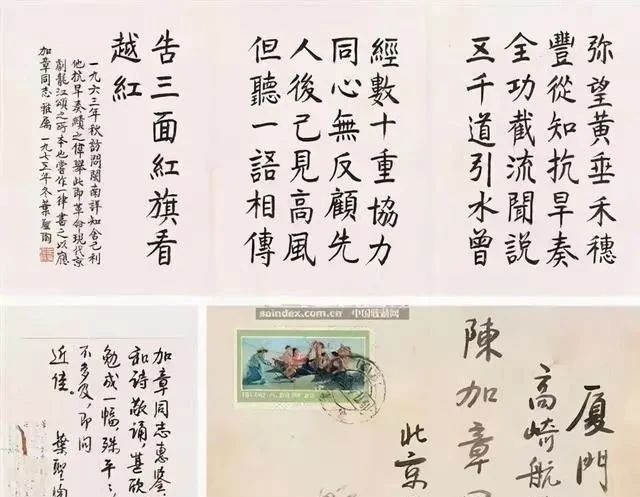 弥望黃垂禾穗
豐從知抗旱奏
全功截流聞說
五千道引水曾
經數十重協力
同心無反顧先
人後己見高風
但聽一語相傳
告三面紅旗看
越紅
一九六三年秋訪問閩南詳知舍己利
他抗旱奏績之偉舉此即革命現代京
劇龍江頌之所本也嘗作一律書之以應
加章同志雅屬 一九七五年冬葉聖陶
加章同志惠鑒
和詩敬誦甚欣
勉成一幅殊平
不多及,即問
近佳。
葉聖陶
soindex.com.cn 中国收藏网
廈門
高崎航
陳加章
北京